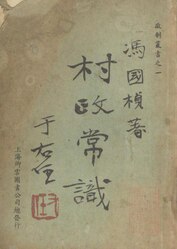 政制叢書之一
馮國楨著
村政常識
于右任
上海卿雲圖書公司總發行